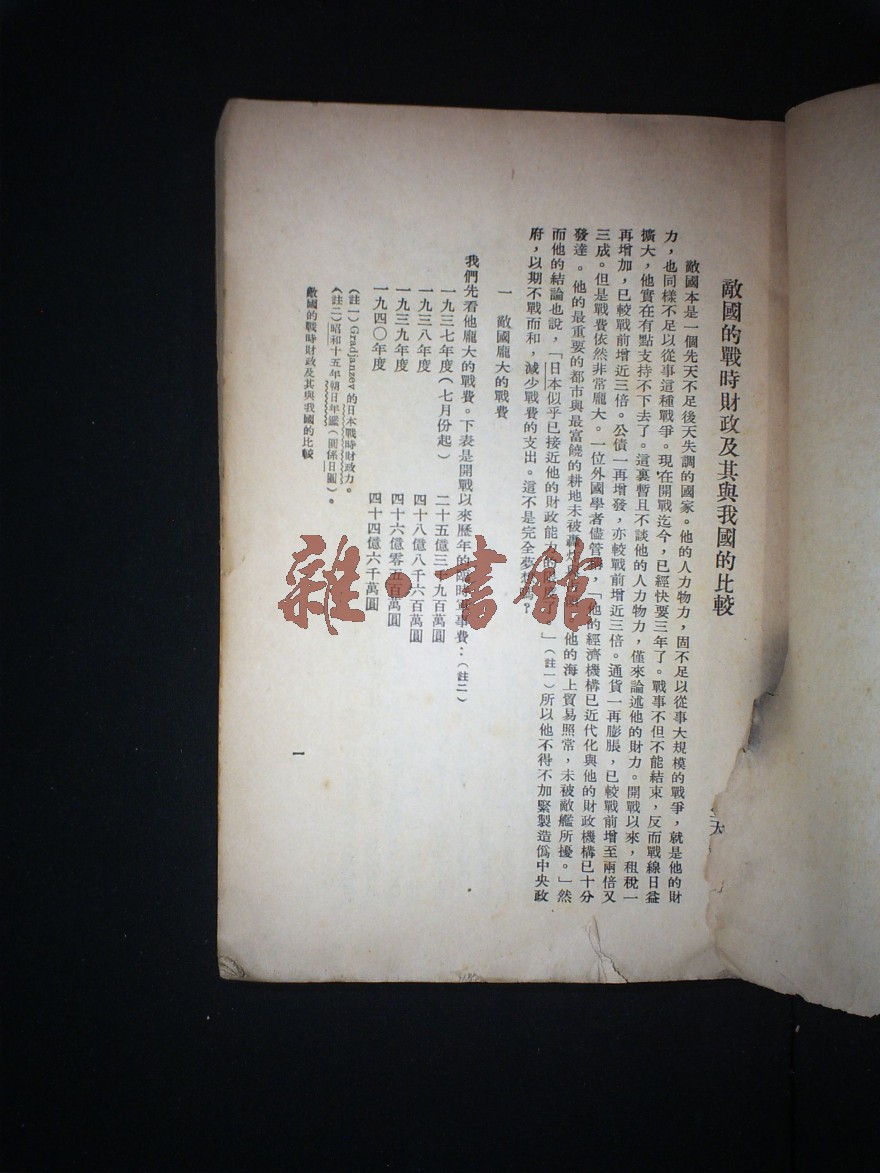 敵國的戰時財政及其與我國的比較
敵國本是一個先天不足後天失調的國家。他的人力物力，固不足以從事大規模的戰爭，就是他的財
力，也同樣不足以從事這種戰爭。現在開戰迄今，已經快要三年了。戰事不但不能結束，反而戰線日益
擴大，他實在有點支持不下去了。這裏暫且不談他的人力物力，僅來論述他的財力。開戰以來，租稅一
再增加，已較戰前增近三倍。公債一再增發，亦較戰前增近三倍。通貨一再膨脹，已較戰前增至兩倍又
三成。但是戰費依然非常龐大。一位外國學者儘管說，「他的經濟機構已近代化與他的財政機構已十分
發達。他的最重要的都市與最富饒的耕地未被轟炸 他的海上貿易照常，未被敵艦所擾。」然
而他的結論也說，「日本似乎已接近他的財政能力的 」（註一）所以他不得不加緊製造僞中央政
府，以期不戰而和，減少戰費的支出。這不是完全夢想嗎？
一　敵國龐大的戰費
我們先看他龐大的戰費。下表是開戰以來歷年的臨時軍事費：（註二）
一九三七年度（七月份起）　二十五億三千九百萬圓
一九三八年度　四十八億八千六百萬圓
一九三九年度　四十六億零五百萬圓
一九四〇年度　四十四億六千萬圓
（註一）Gradjanzev的日本戰時財政力。
（註二）昭和十五年朝日年鑑（關係日圓）。
敵國的戰時財政及其與我國的比較
一
雜·書館